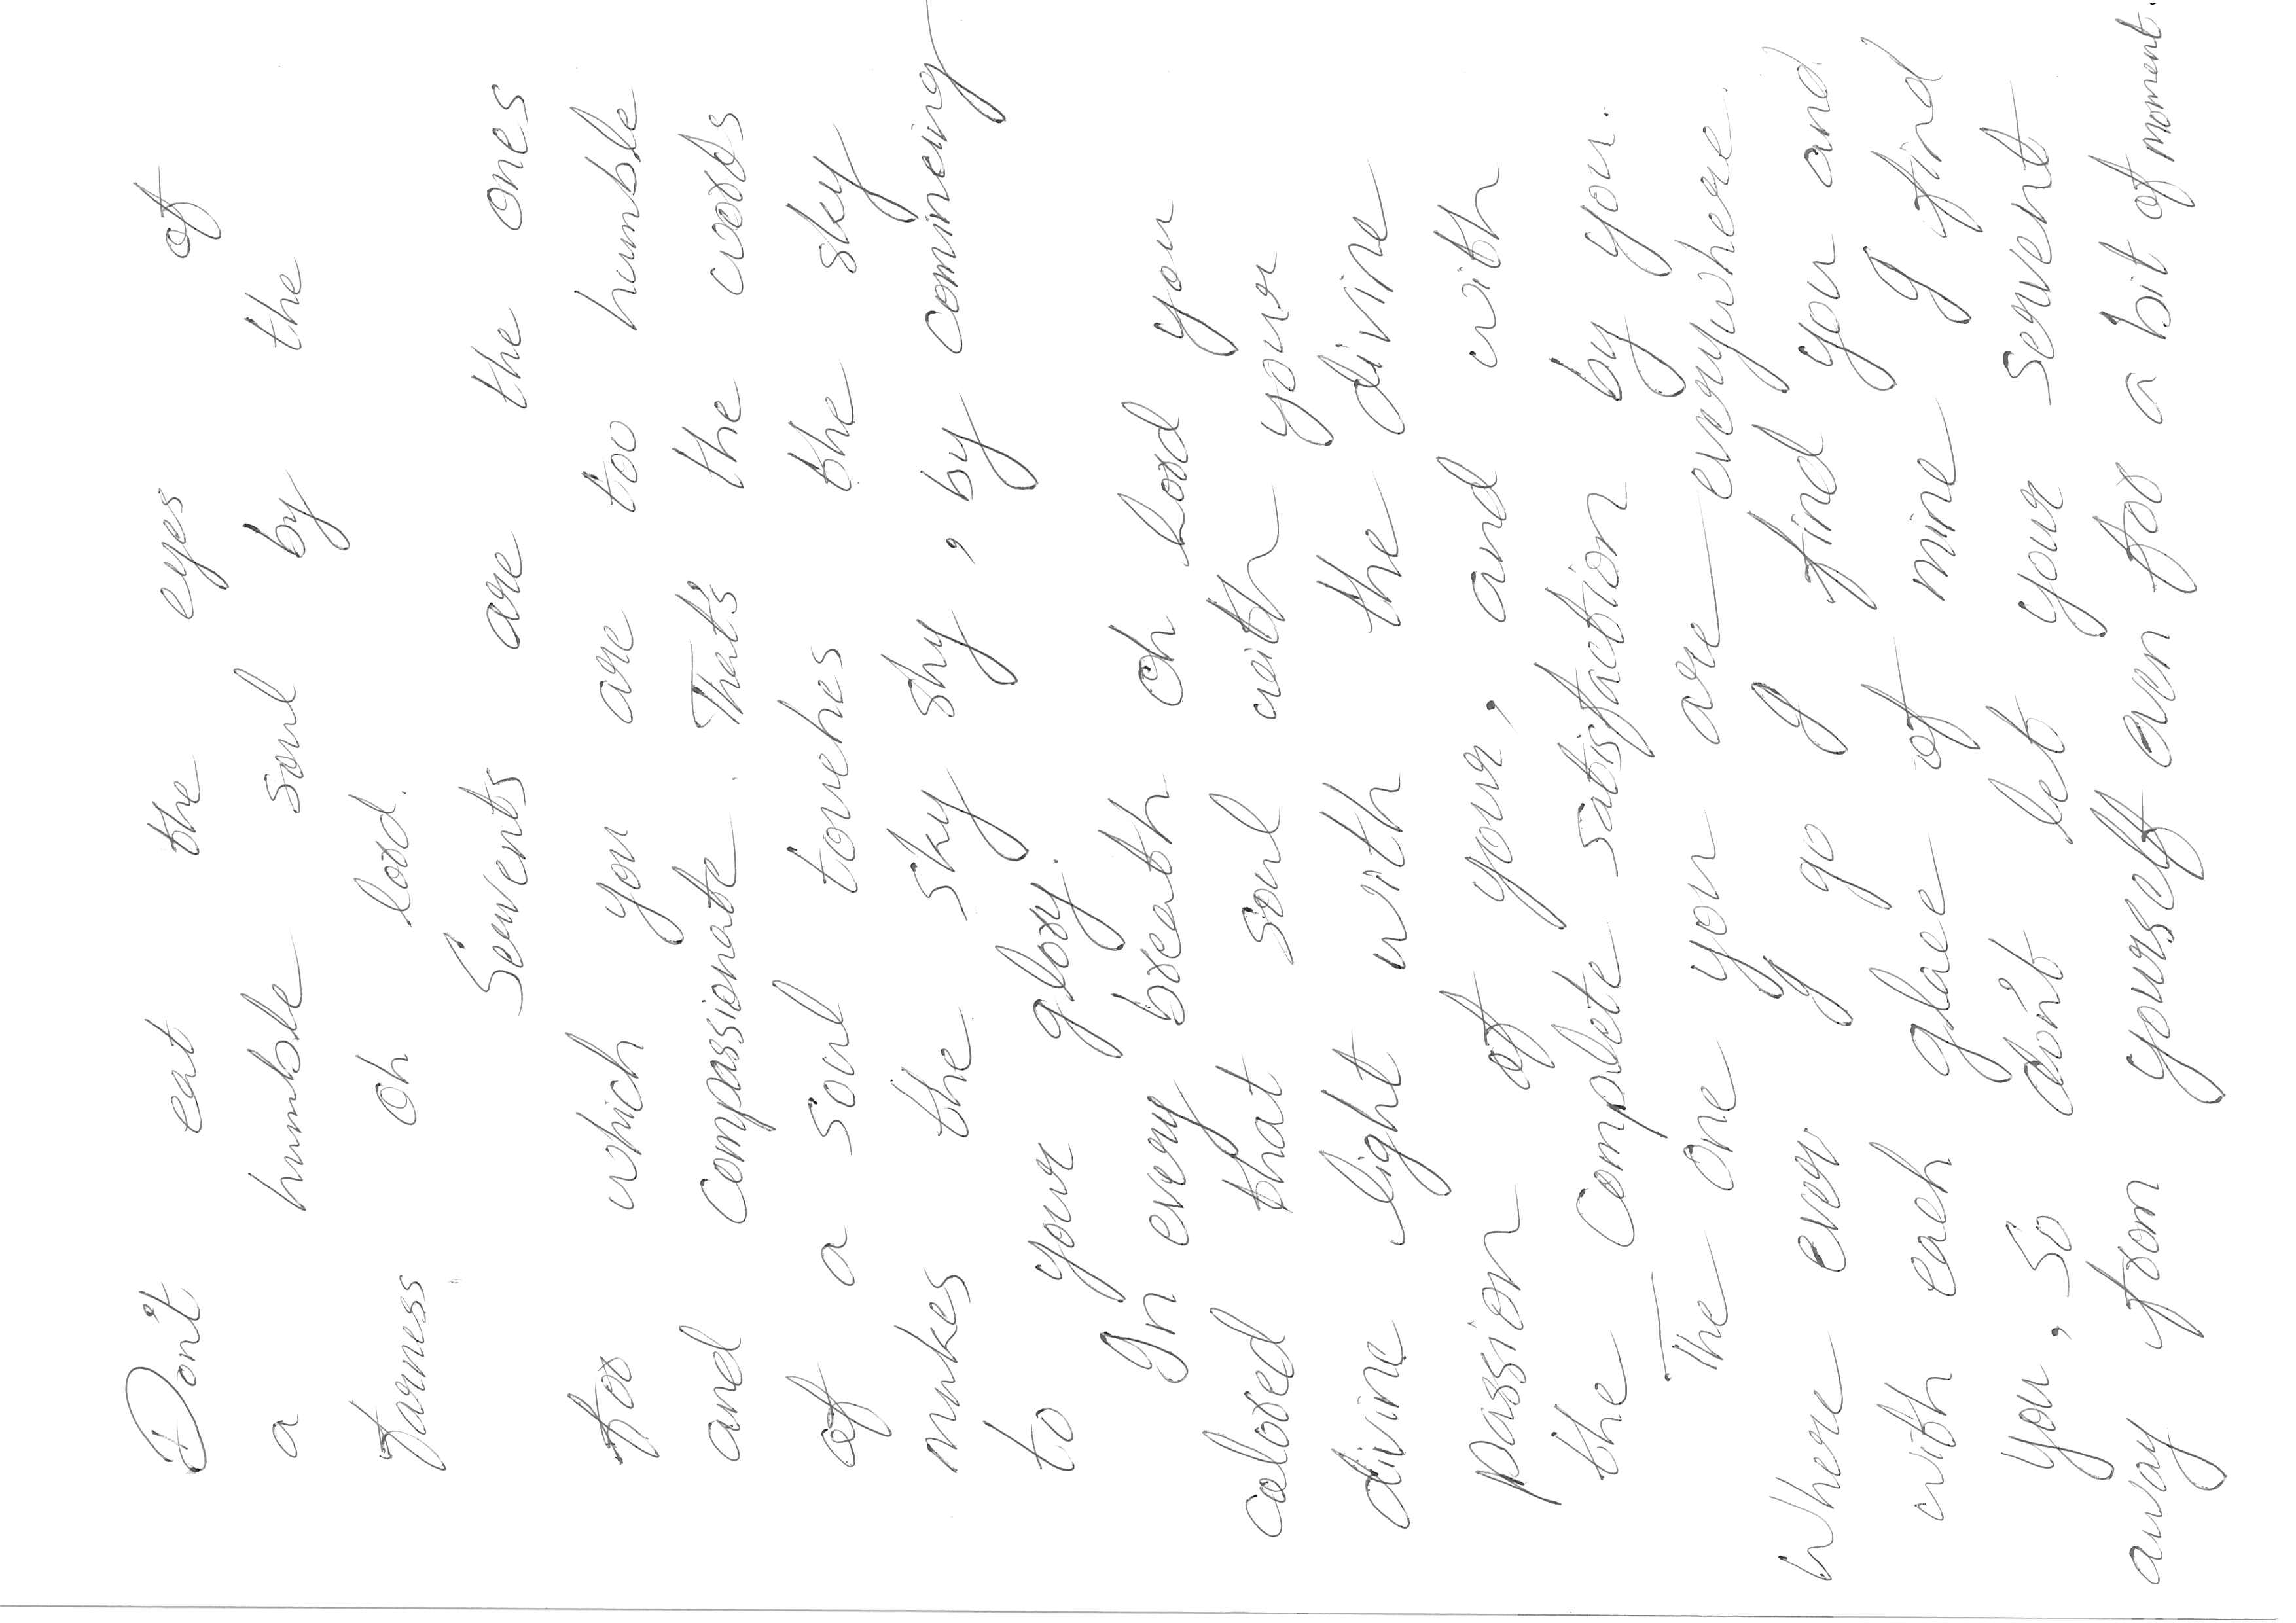 Don't eat the eyes of
a humble soul by the
farness Oh lord.
Servents are the ones
for which you are too humble
and compassionate. That's the words
of a soul touches the sky
makes the sky shy, by comincing
to your glory.
In every breath oh Lord you
colored that soul with your
divine light with the divine
passion of your, and with
the complete satisfaction by you.
The one you are everywhere.
Where ever I go I find you and
with each glace of mine I find
you, So don't let your servent
away from yourself even for a bit of moment.